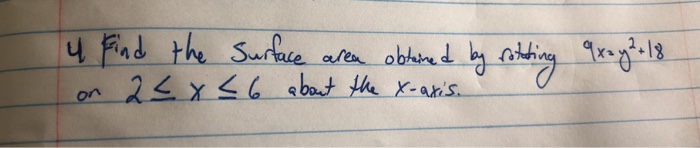 4 Find the Surface area obtained by rotating 9x=y²+18
on 2 ≤ x ≤ 6 about the x-axis.